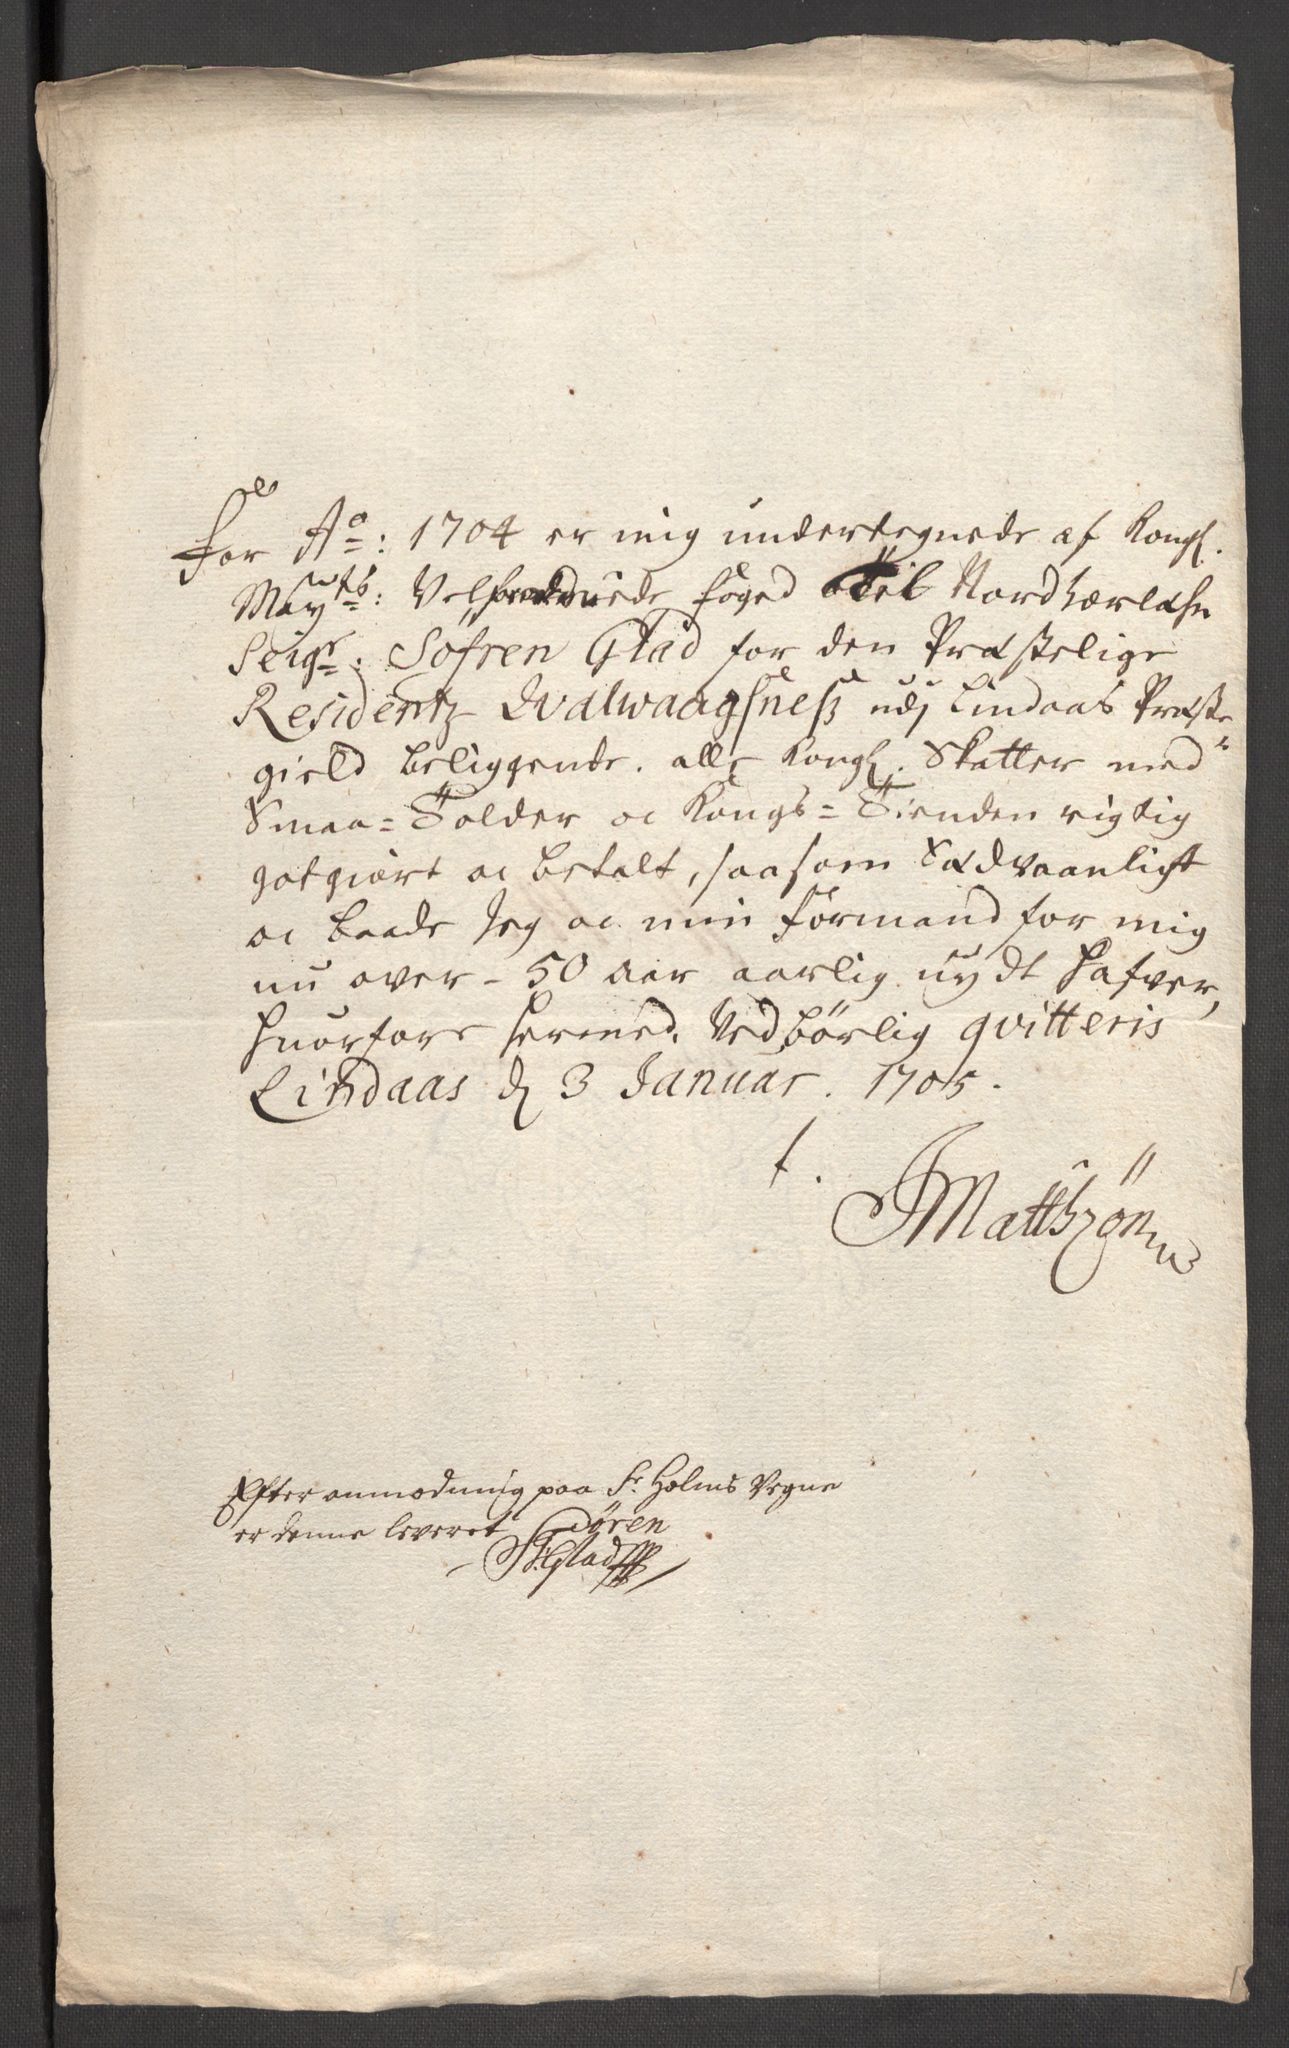 For Ao: 1704 er mig undertegnede af Kongl.
Mayts: Velfornemede foged till Nordhorlehn
Seigr: Söfren Glad for den Præstelige
Residentz Qvalwaagsness udj Lindaas Præste-
gield beliggende. alle Kongl. Skatter med
Smaa-Tolder oc Kongs-Tienden rigtig
gotgiort oc betalt, saasom Sædvaanligt
oc baade Jeg oc min formand for mig
nu over - 50 aar aarlig nydt hafver,
huorfore hermed. Vedbörlig qvitteris
Lindaas d 3 Januar. 1705.
t.
JMatthzön
Efter anmodning paa Sr. Holms Vegne
er denne leveret Sören